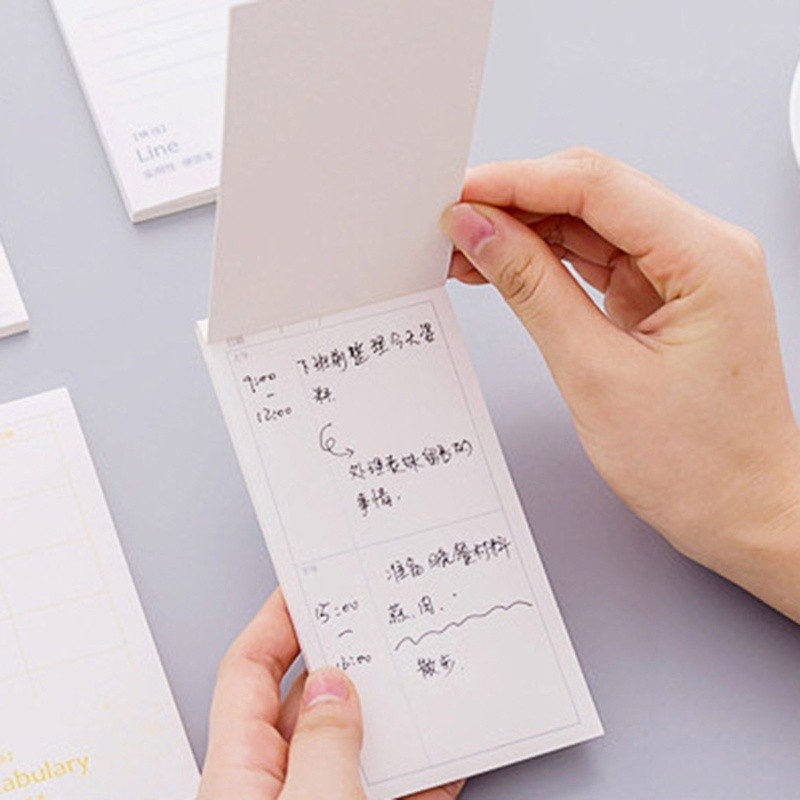 【横线】
Line
日期 / /
上午
9:00
-
12:00
下班前整理今天资
料.
处理表妹留言的
事情.
下午
15:00
-
16:00
准备晚餐材料
蔬.肉.
散步.
abulary